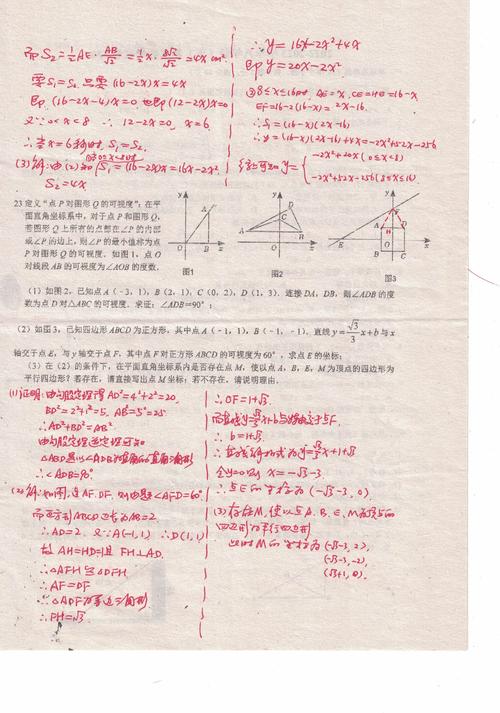 而S₂=½AE·AB/√2=½x·8√2/√2=4x cm².
要S₁=S₂ 只要(16-2x)x=4x
即(16-2x-4)x=0 也即(12-2x)x=0
又∵0<x<8 ∴12-2x=0, x=6
∴当x=6秒时, S₁=S₂.
(3)解:由(2)知 S₁=(16-2x)x=16x-2x²
S₂=4x
∴y=16x-2x²+4x
即y=20x-2x²
②8≤x≤16时, AE=x, CE=HE=16-x
EF=16-2(16-x)=2x-16.
∴S₁=(16-x)(2x-16)
∴y=(16-x)(2x-16)+4x=-2x²+52x-256
综上可知 y={-2x²+20x (0≤x<8)
-2x²+52x-256(8≤x≤16)
23.定义“点P对图形Q的可视度”:在平
面直角坐标系中,对于点P和图形Q,
若图形Q上所有的点都在∠P的内部
或∠P的边上,则∠P的最小值称为点
P对图形Q的可视度.如图1,点O
对线段AB的可视度为∠AOB的度数.
图1
图2
图3
(1)如图2,已知点A(-3,1),B(2,1),C(0,2),D(1,3).连接DA,DB.则∠ADB的度
数为点D对△ABC的可视度.求证:∠ADB=90°;
(2)如图3,已知四边形ABCD为正方形,其中点A(-1,1),B(-1,-1).直线y=√3/3x+b与x
轴交于点E,与y轴交于点F,其中点F对正方形ABCD的可视度为60°,求点E的坐标;
(3)在(2)的条件下,在平面直角坐标系内是否存在点M,使以点A,B,E,M为顶点的四边形为
平行四边形?若存在,请直接写出点M坐标;若不存在,请说明理由.
(1)证明:由勾股定理得AD²=4²+2²=20,
BD²=2²+1²=5, AB²=5²=25
∴AD²+BD²=AB²
由勾股定理逆定理可知
△ABD是以∠ADB为直角的直角三角形
∴∠ADB=90°
(2)解:如图,连AF.DF.则由题∠AFD=60°
而正方形ABCD边长为AB=2.
∴AD=2. 又∵A(-1,1) ∴D(1,1)
故AH=HD=1且FH⊥AD.
∴△AFH≌△DFH
∴AF=DF
∴△ADF为等边三角形
∴FH=√3
∴OF=1+√3.
而直线y=√3/3x+b与y轴交于点F.
∴b=1+√3.
∴直线解析式为y=√3/3x+1+√3
令y=0则x=-√3-3
∴点E的坐标为(-√3-3,0)
(3)存在M,使以点A.B.E.M为顶点的
四边形为平行四边形
此时M的坐标为(-√3-3,2),
(-√3-3,-2),
(√3+1,0).